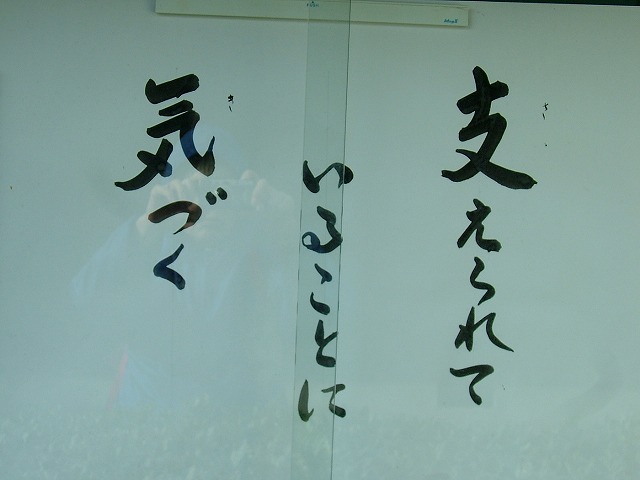 支えられて
いることに
気づく